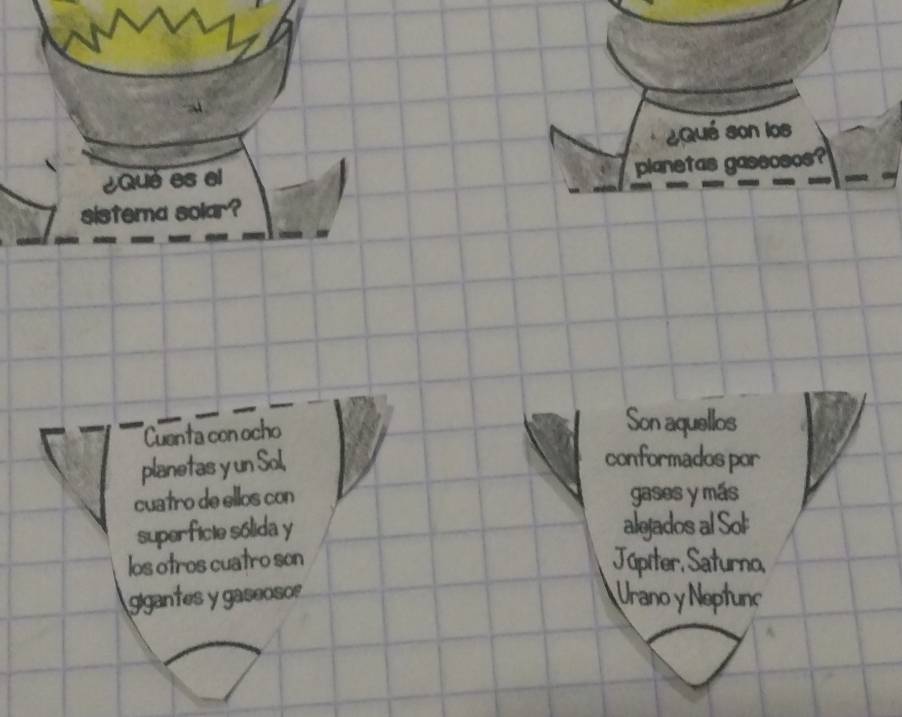 ¿Qué es el
sistema solar?
¿Qué son los
planetas gaseosos?
Cuenta con ocho
planetas y un Sol,
cuatro de ellos con
superficie sólida y
los otros cuatro son
gigantes y gaseosos
Son aquellos
conformados por
gases y más
alejados al Sol:
Júpiter, Saturno,
Urano y Neptuno